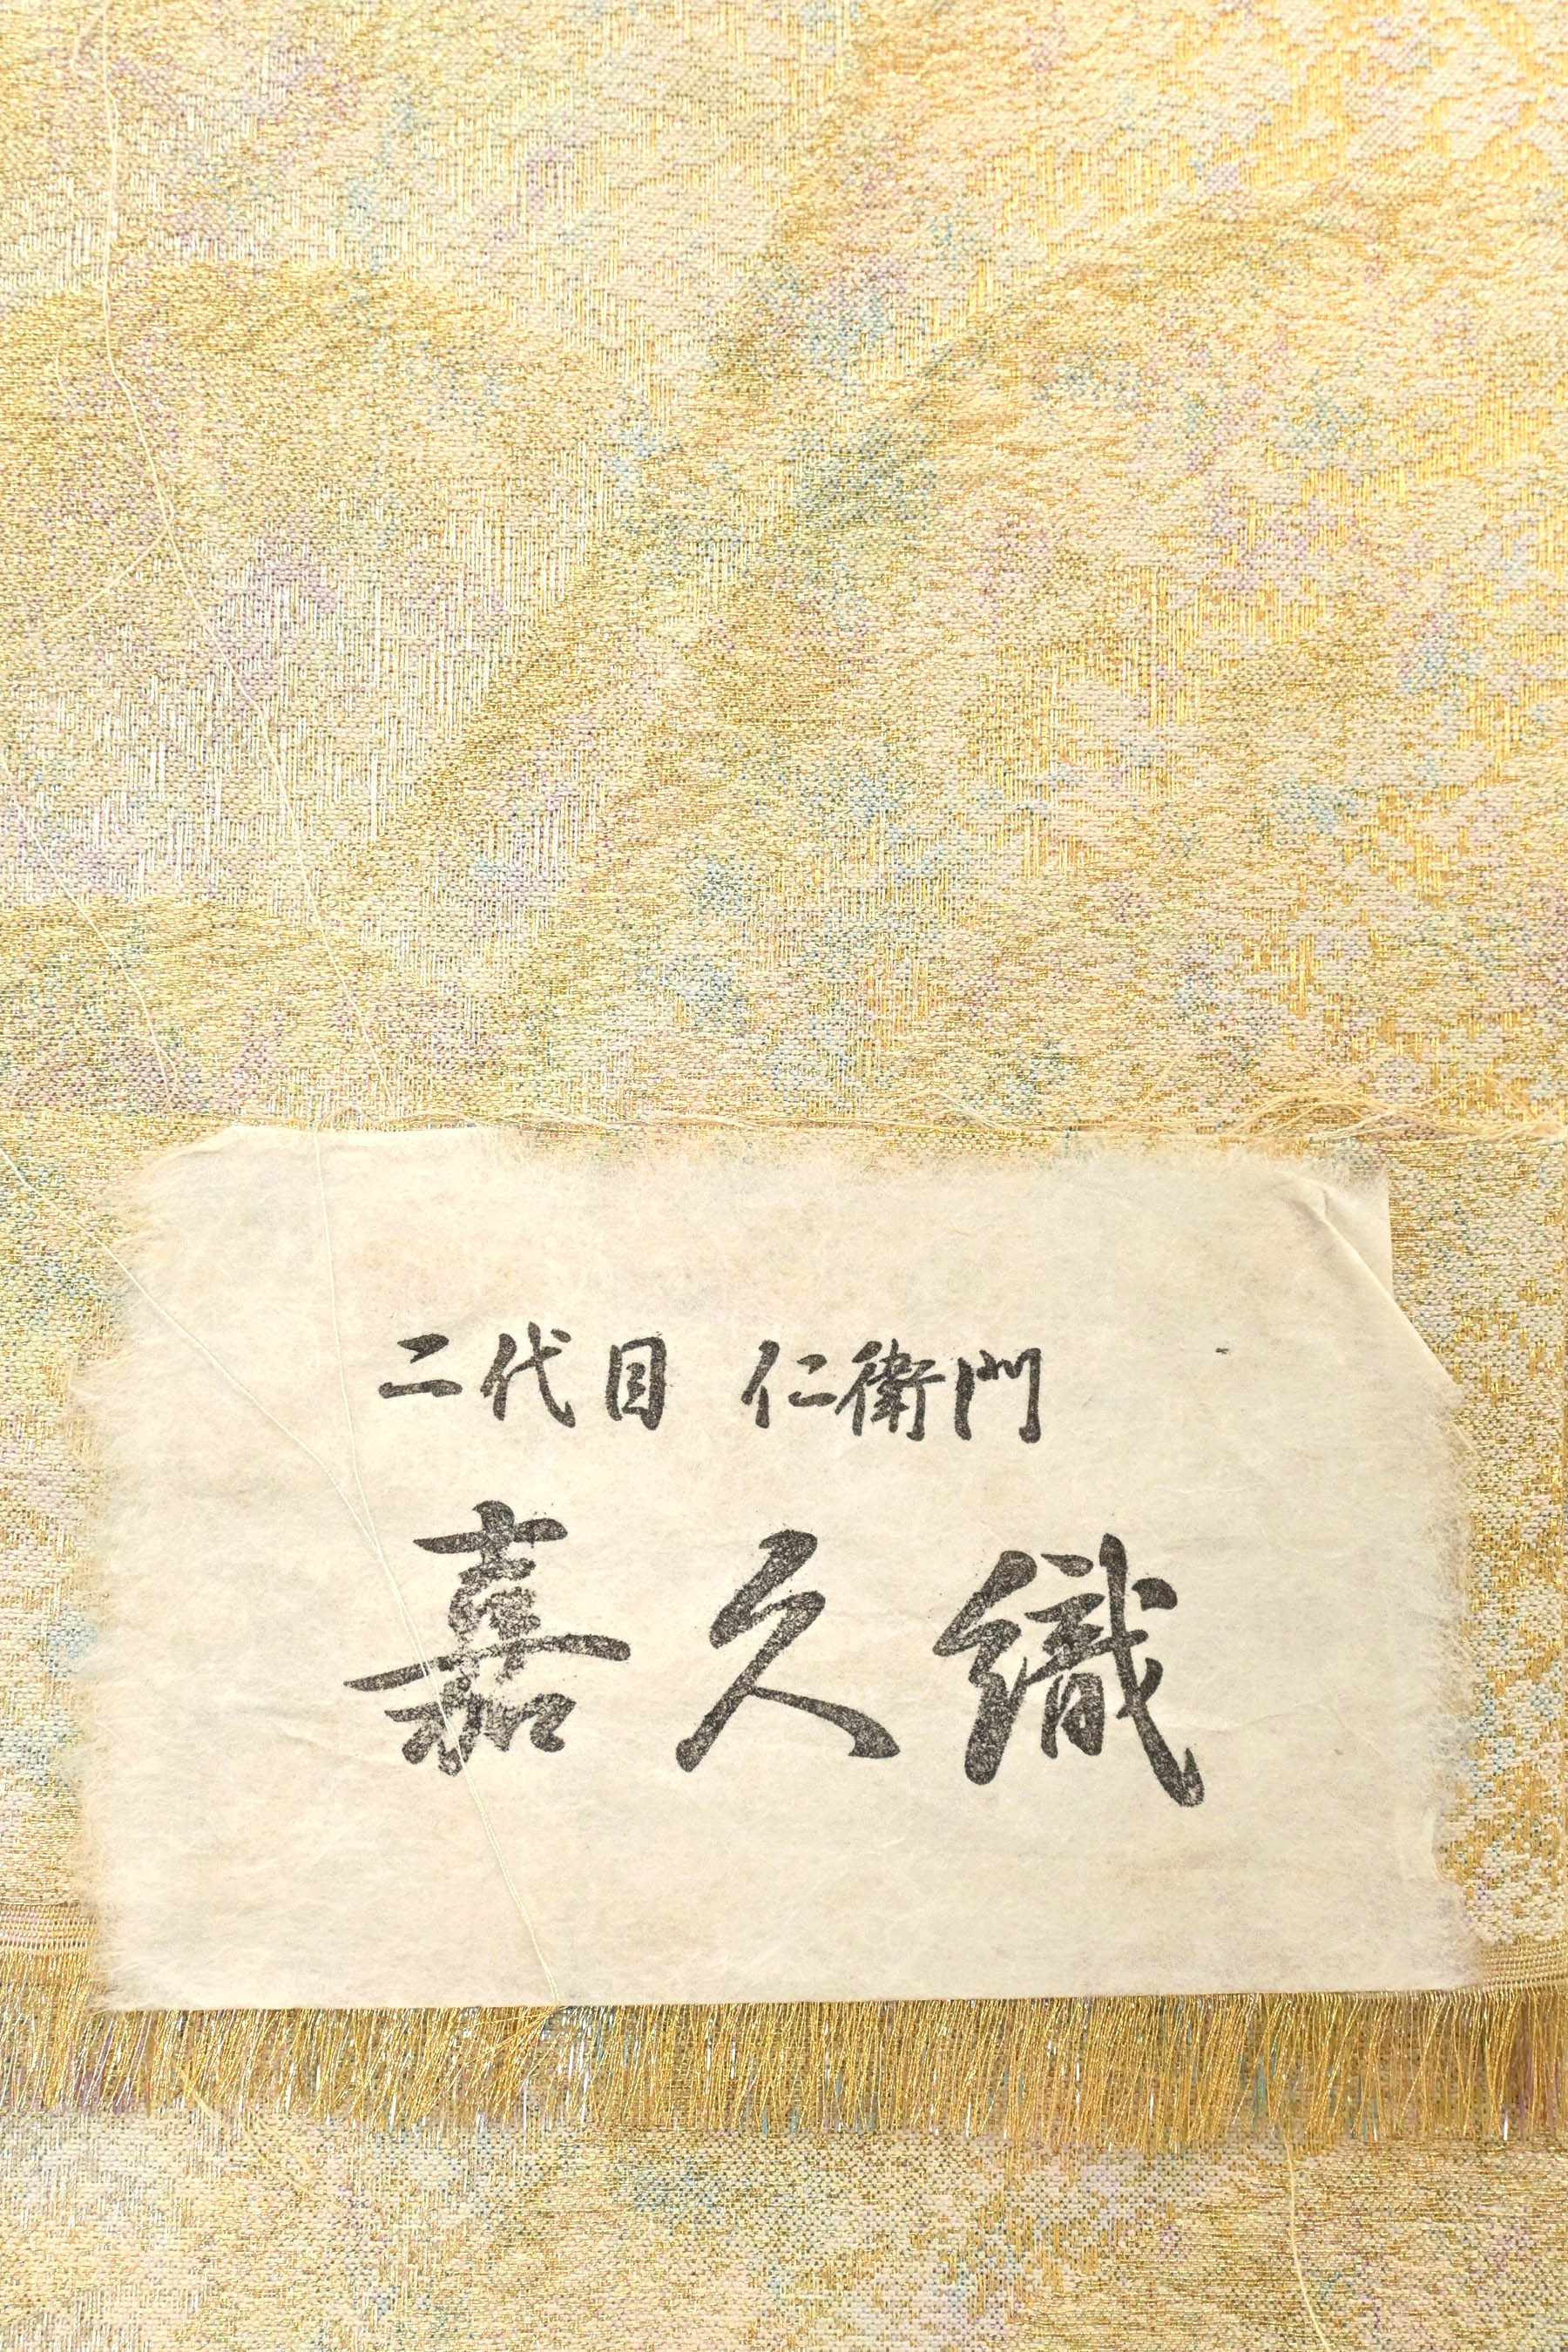 二代目 仁衛門
嘉久織